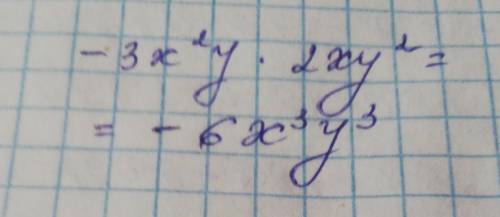 - 3x²y · 2xy² =
= - 6x³y³